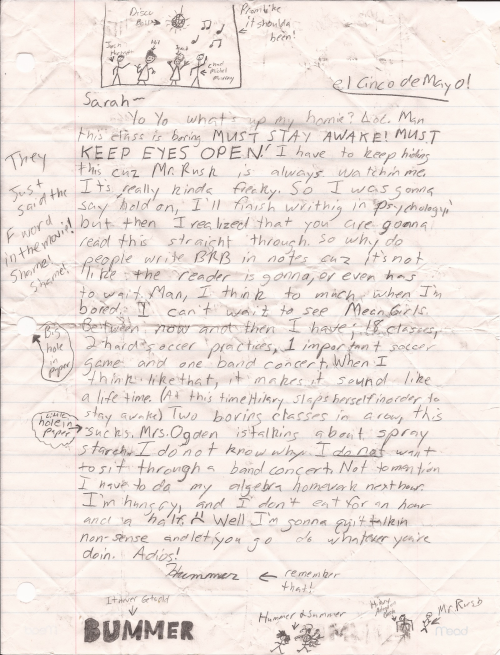 Disco
Ball
Prom like
it shoulda
been!
el Cinco de Mayo!
Sarah~
Yo Yo what's up my homie? Lol. Man
this class is boring MUST STAY AWAKE! MUST
KEEP EYES OPEN! I have to keep hiding
this cuz Mr. Rusk is always watchin me.
It's really kinda freaky. So I was gonna
say hold on, I'll finish writhig in psychology,
but then I realized that you are gonna
read this straight through. So why do
people write BRB in notes cuz it's not
like the reader is gonna, or even has
to wait. Man, I think to much when I'm
bored. I can't wait to see Mean Girls.
Between now and then I have; 18 classes,
2 hard soccer practices, 1 important soccer
game and one band concert. When I
think like that, it makes it sound like
a life time. (At this time Hilary slaps herself in order to
stay awake) Two boring classes in a row, this
sucks. Mrs. Ogden is talking about spray
starch. I do not know why. I do not want
to sit through a band concert. Not to mention
I have to do my algebra homewak next hour.
I'm hungry, and I don't eat for an hour
and a half. Well I'm gonna quit talkin
non-sense and let you go do whatever you're
doin. Adios!
Hummer
← remember
that!
They
Just
said the
F word
in the movie!
Shame!
Shame!
Big
hole
in
paper
Little
hole in
paper
It never gets old
BUMMER
Hummer & Summer
Mr. Rusk
Mead